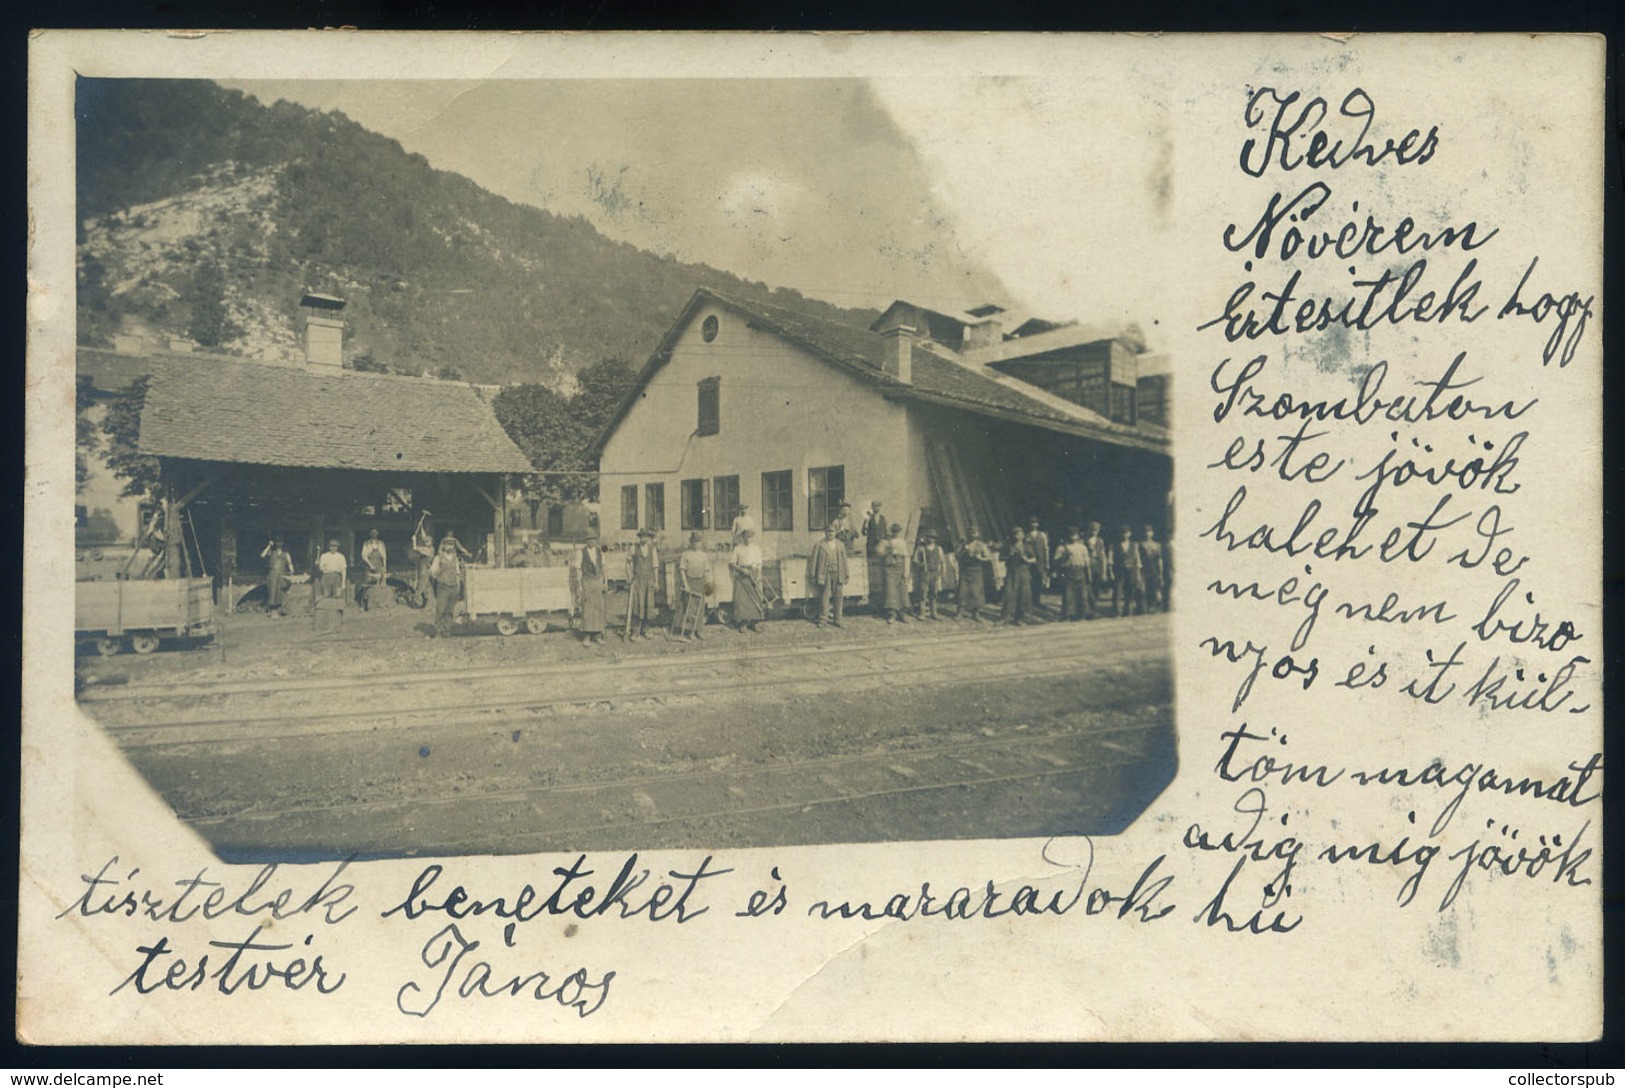 Kedves
Nővérem
Értesitlek hogy
Szombaton
este jövök
halehet de
még nem bizo
nyos és it kül-
töm magamat
adig mig jövök
tísztelek beneteket és mararadok hü
testvér János
collectorspub